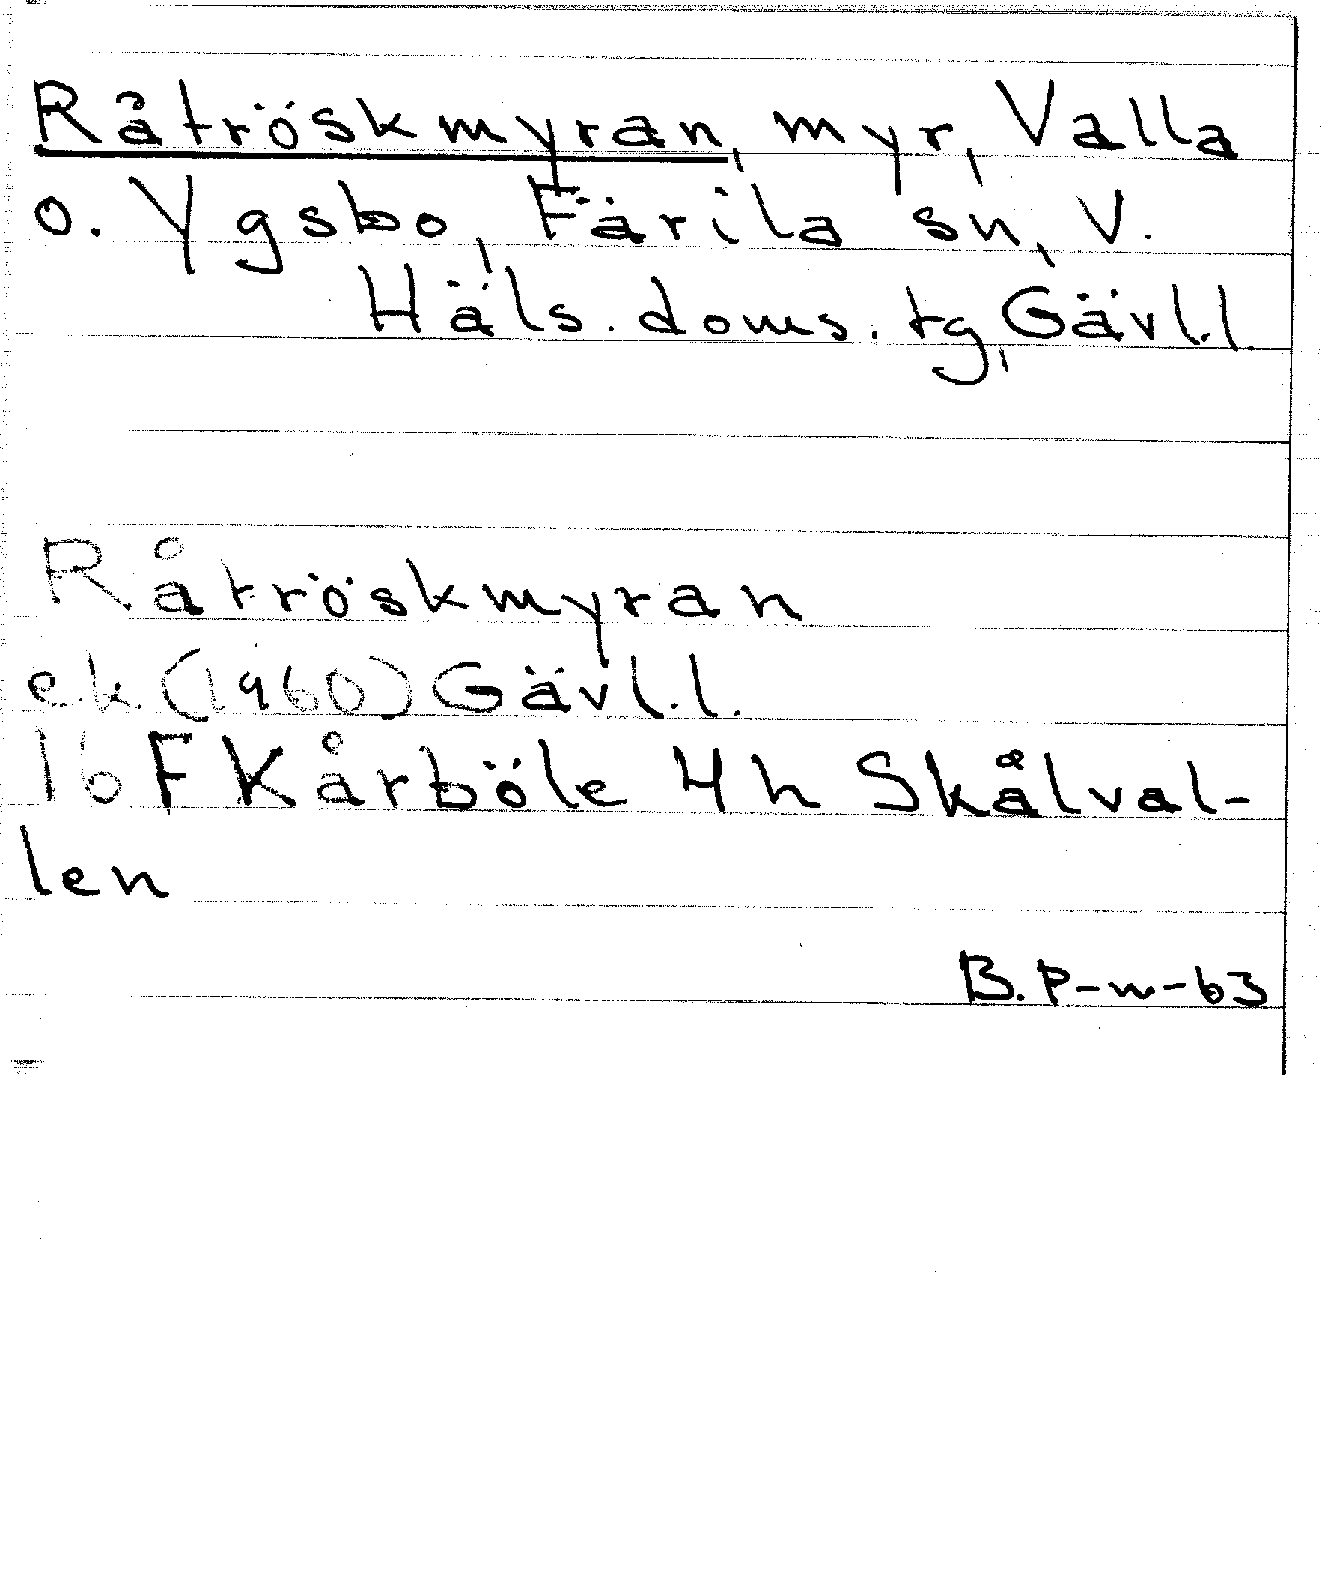 Råtröskmyran, myr, Valla
o. Ygsbo, Färila sn, V.
Häls. doms. tg, Gävl.l.
Råtröskmyran
e.k. (1960) Gävl.l.
16 F Kårböle 4 h Skålval-
len
B. P-n-63